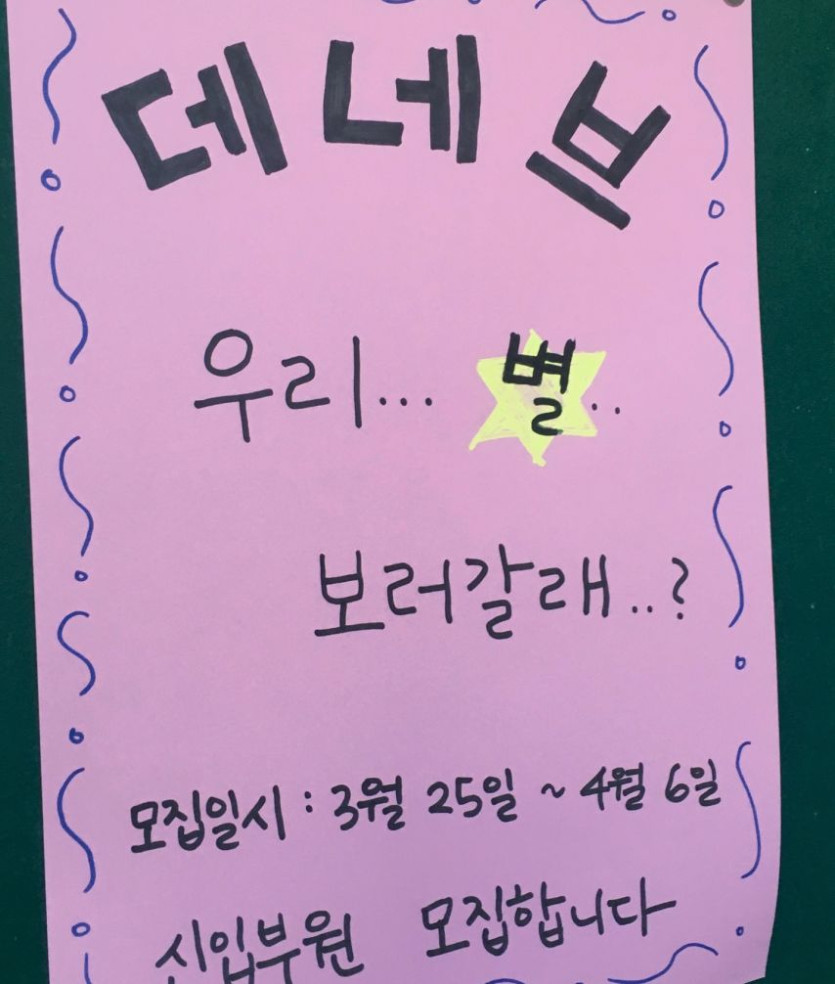 데네브
우리... 별..
보러갈래..?
모집일시 : 3월 25일 ~ 4월 6일
신입부원 모집합니다